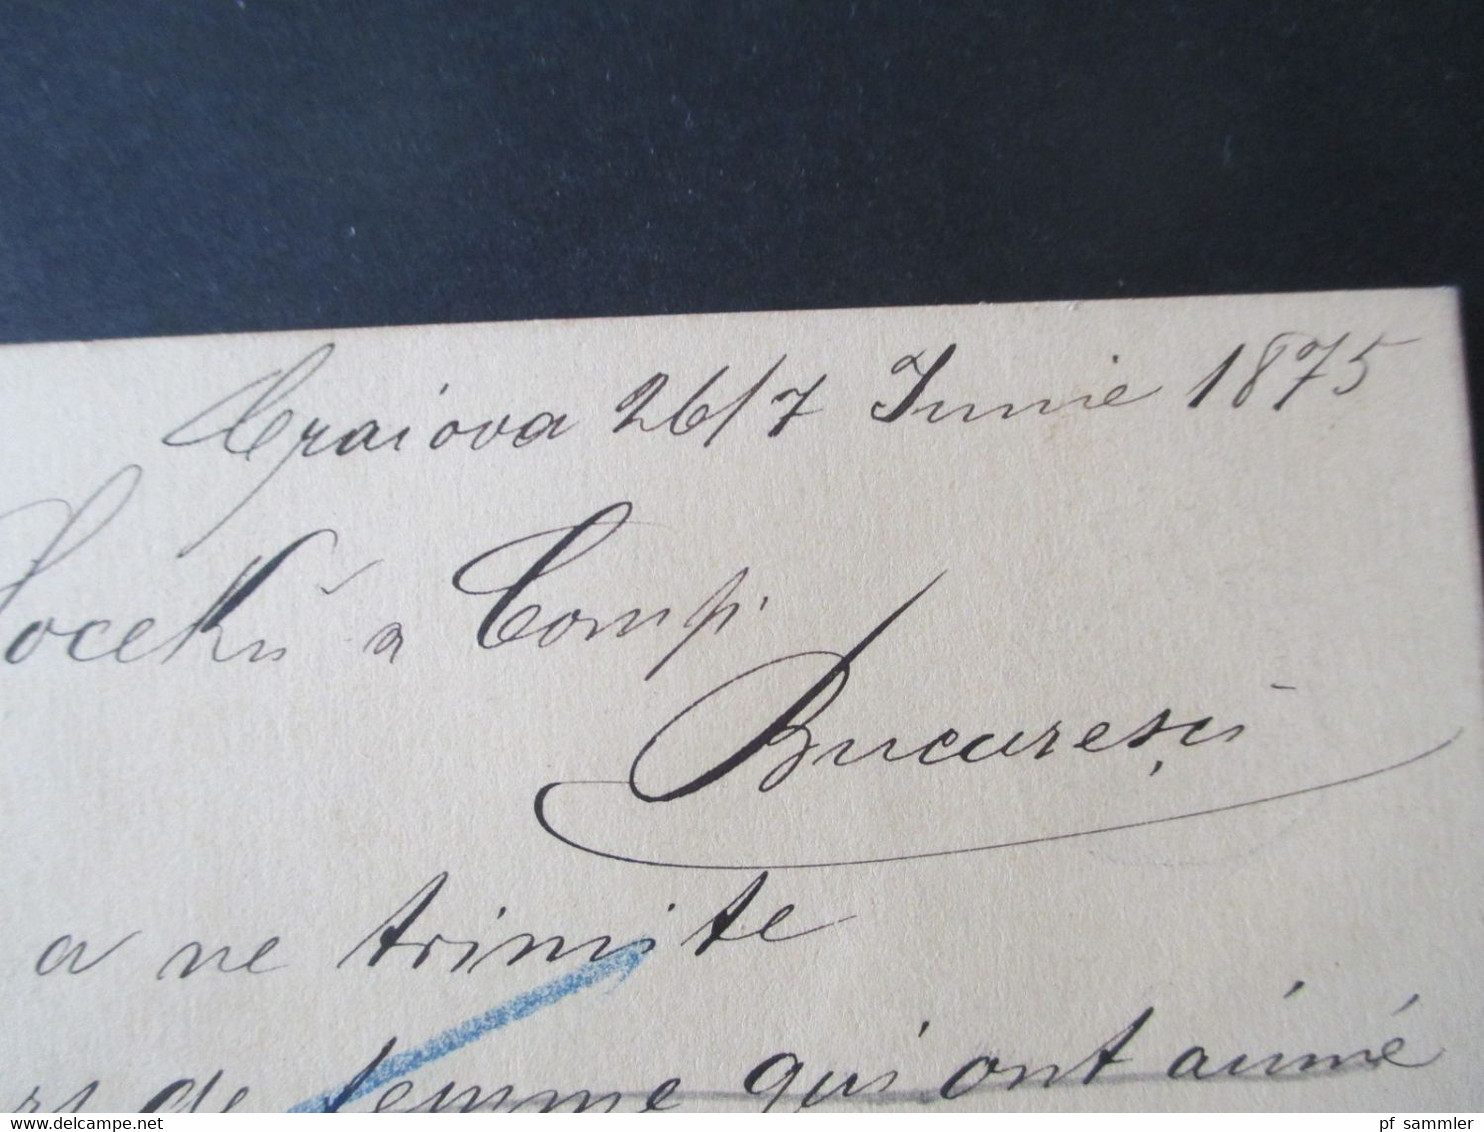 Craiova 26/7 Iunie 1875
Soceků & Comp.
Bucuresci
a ne trimite
de femme qui ont aimé
delcampe.net
pf_sammler